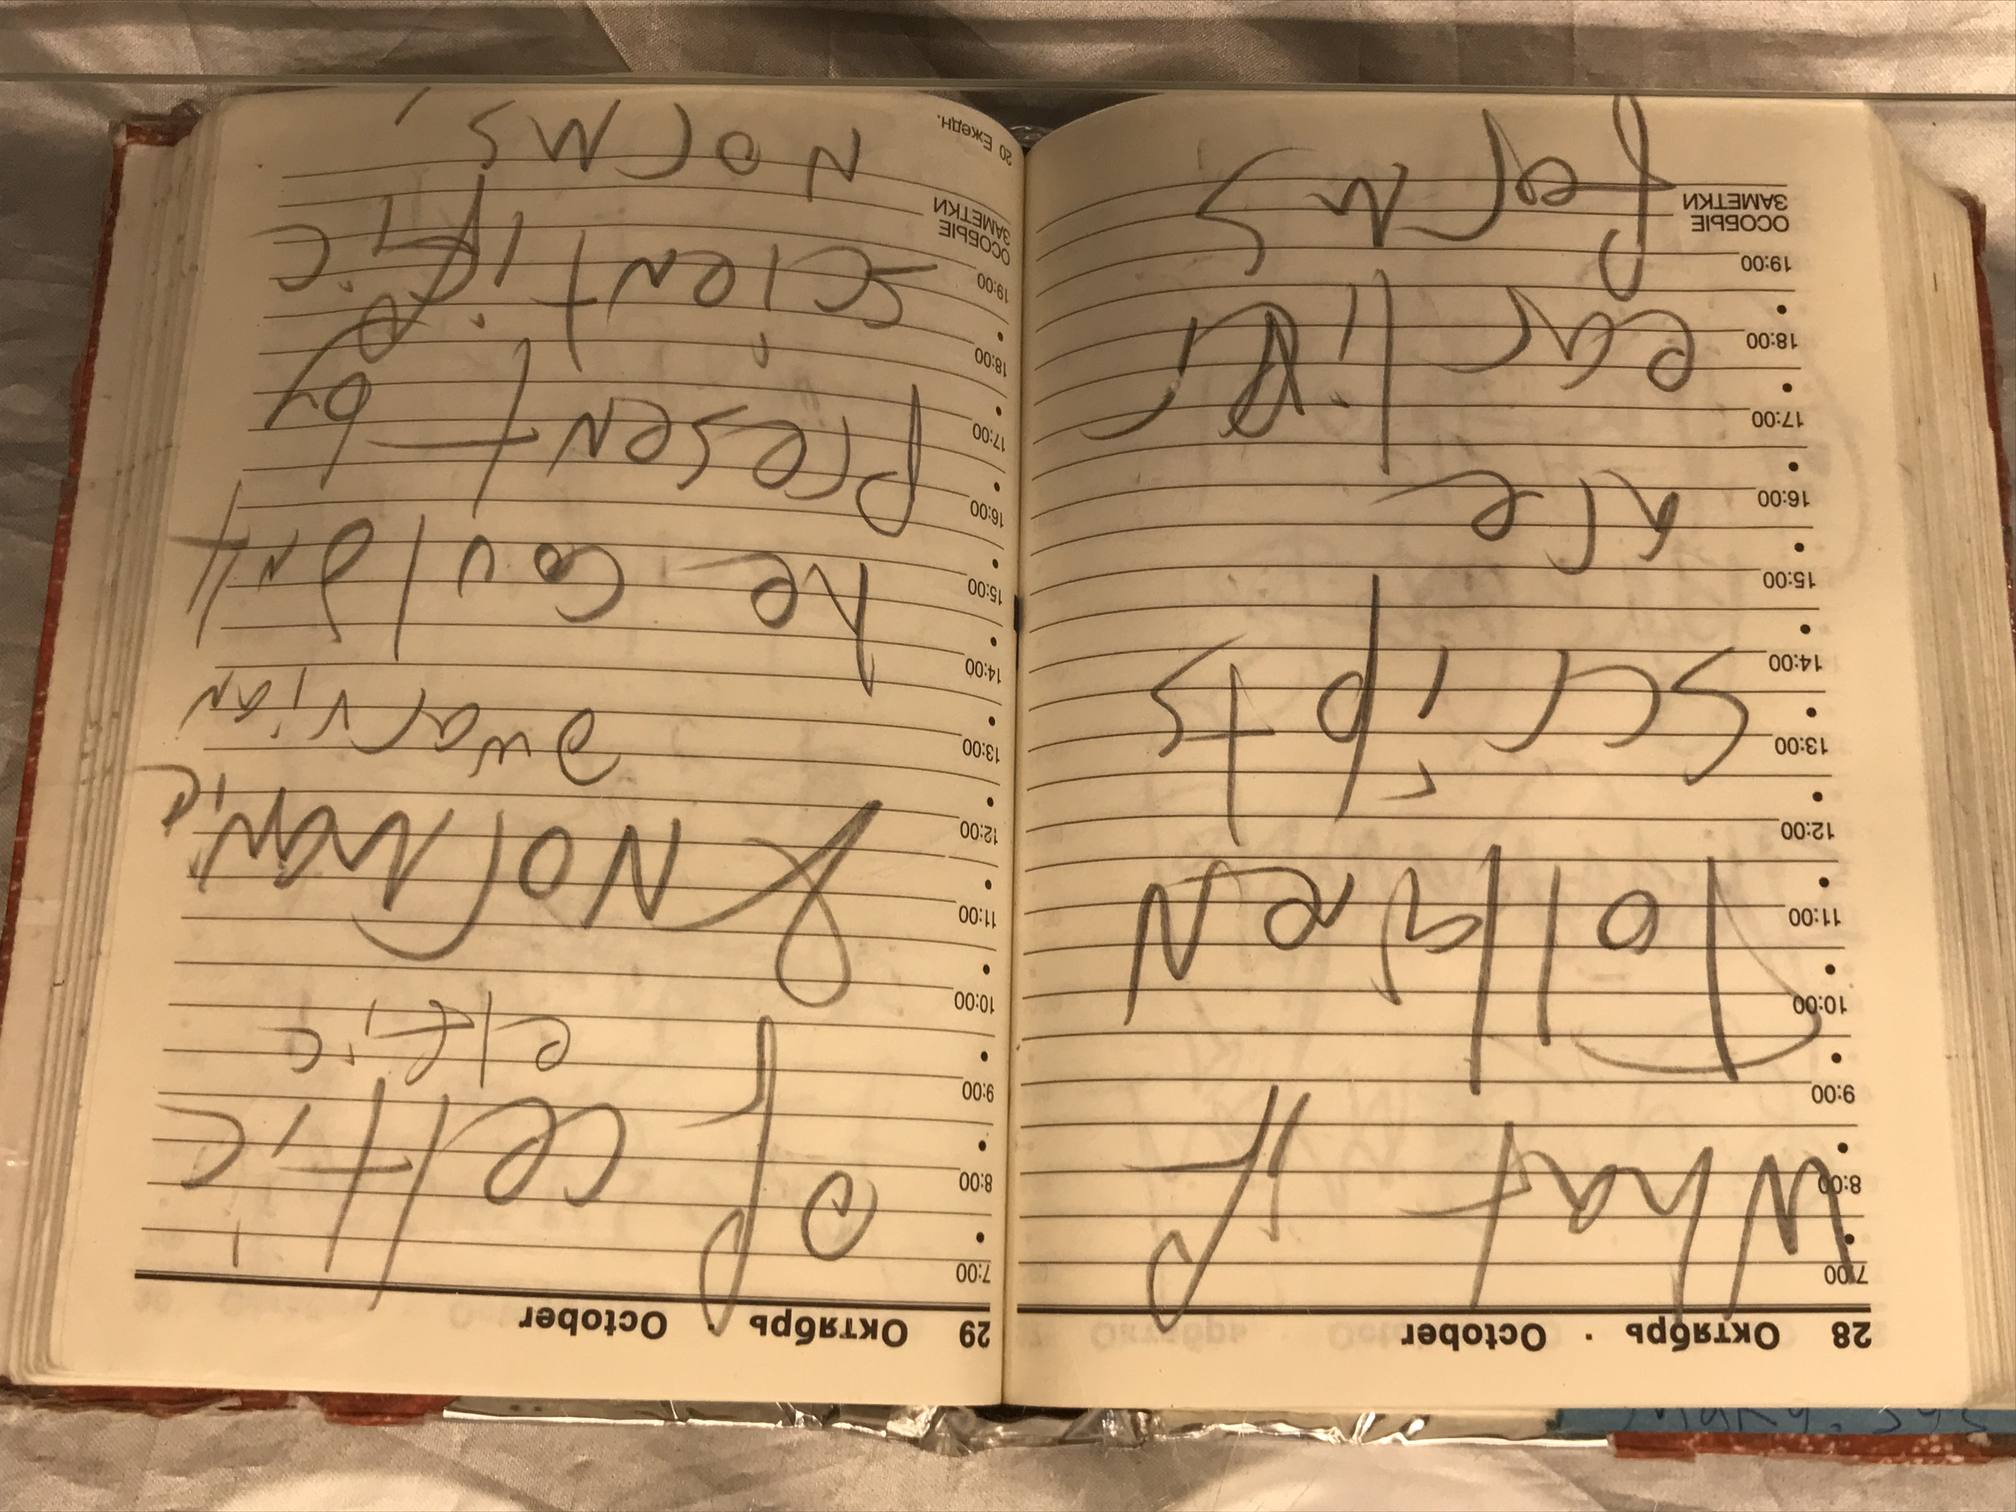 28 Октябрь · October
7:00
8:00
9:00
10:00
11:00
12:00
13:00
14:00
15:00
16:00
17:00
18:00
19:00
ОСОБЫЕ
ЗАМЕТКИ
What if
Tolken
scripts
are
earlier
forms
29 Октябрь · October
7:00
8:00
9:00
10:00
11:00
12:00
13:00
14:00
15:00
16:00
17:00
18:00
19:00
ОСОБЫЕ
ЗАМЕТКИ
20 Ежедн.
of celtic
eltic
&
dwarvian
he couldn't
present by
scientific
norms,